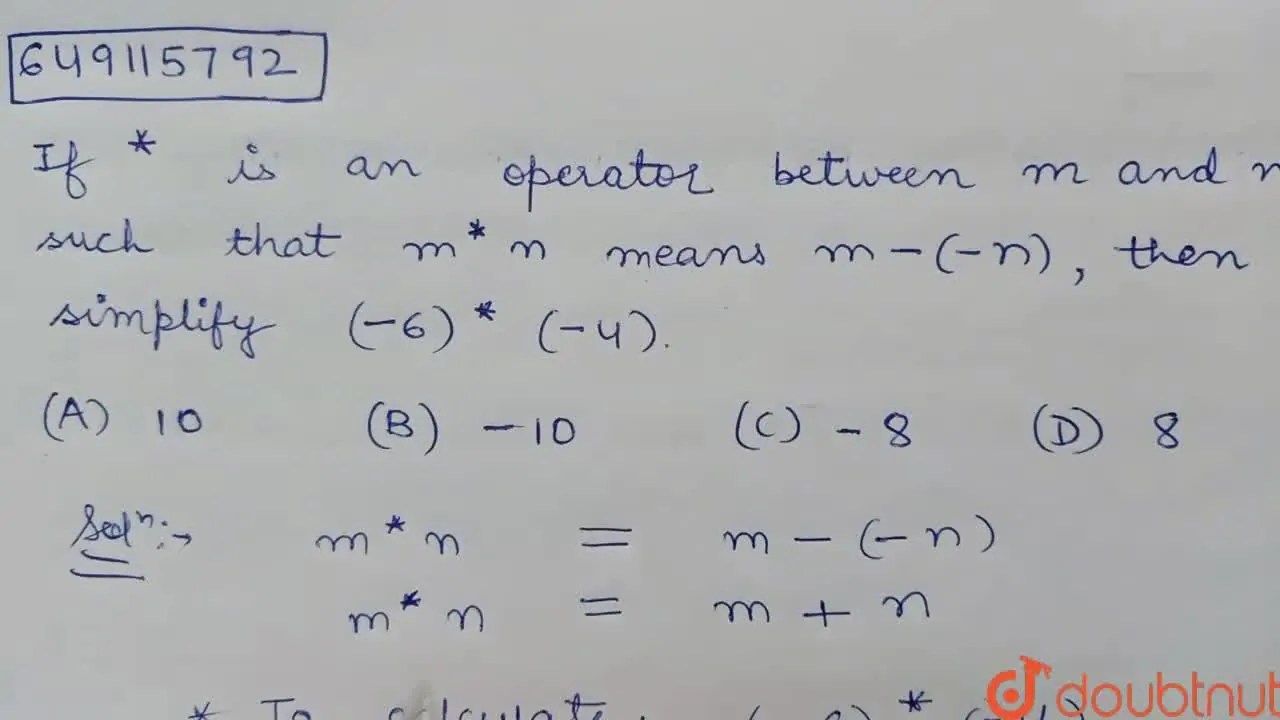 649115792
If * is an operator between m and n
such that m * n means m - (-n), then
simplify (-6) * (-4).
(A) 10 (B) -10 (C) -8 (D) 8
Solⁿ:→ m * n = m - (-n)
m * n = m + n
* To calculate
doubtnut